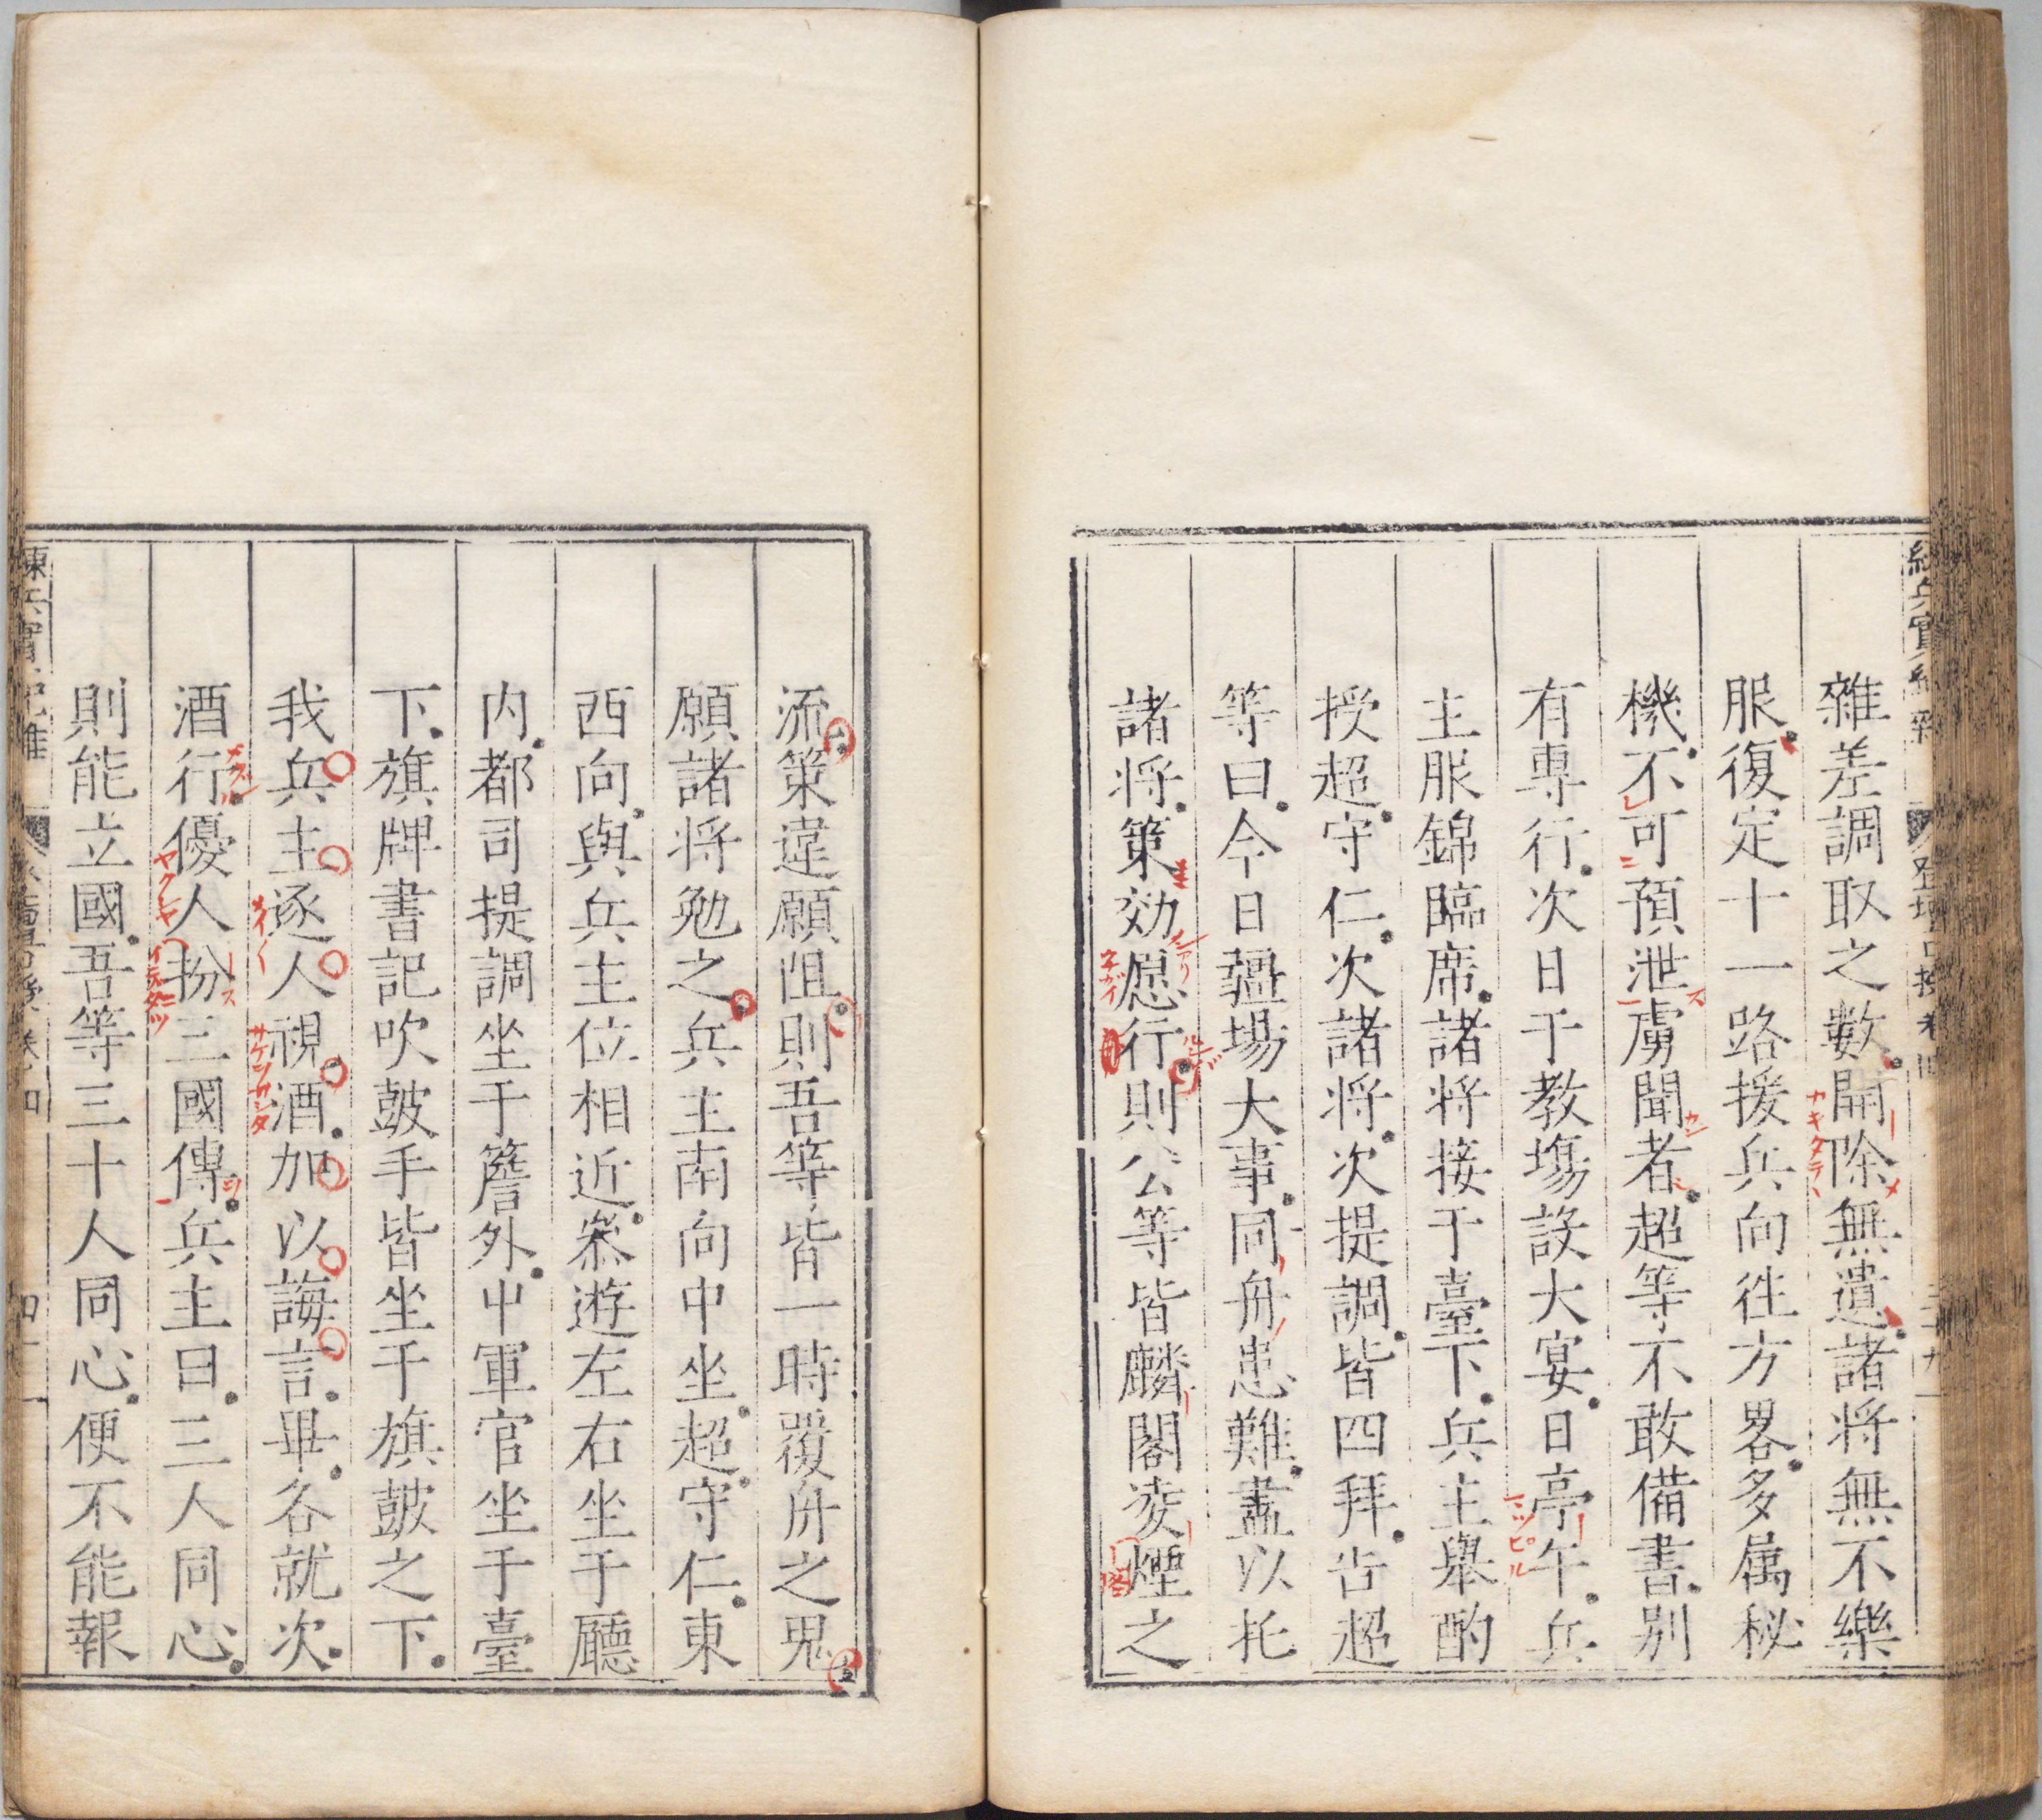 雜差調取之數開除無遺諸将無不樂
服復定十一路援兵向徃方畧多属秘
機不可預泄虜聞者超等不敢備書别
有專行次日于教塲設大宴日亭午兵
主服錦臨席諸将接于臺下兵主舉酌
授超守仁次諸将次提調皆四拜告超
等曰今日疆場大事同舟患難盡以托
諸将策効愿行則公等皆麟閣凌煙之
流策違願阻則吾等皆一時覆舟之鬼
願諸将勉之兵主南向中坐超守仁東
西向與兵主位相近叅遊左右坐于廳
内都司提調坐于簷外中軍官坐于臺
下旗牌書記吹皷手皆坐于旗皷之下
我兵主逐人視酒加以誨言畢各就次
酒行優人扮三國傳兵主曰三人同心
則能立國吾等三十人同心便不能報